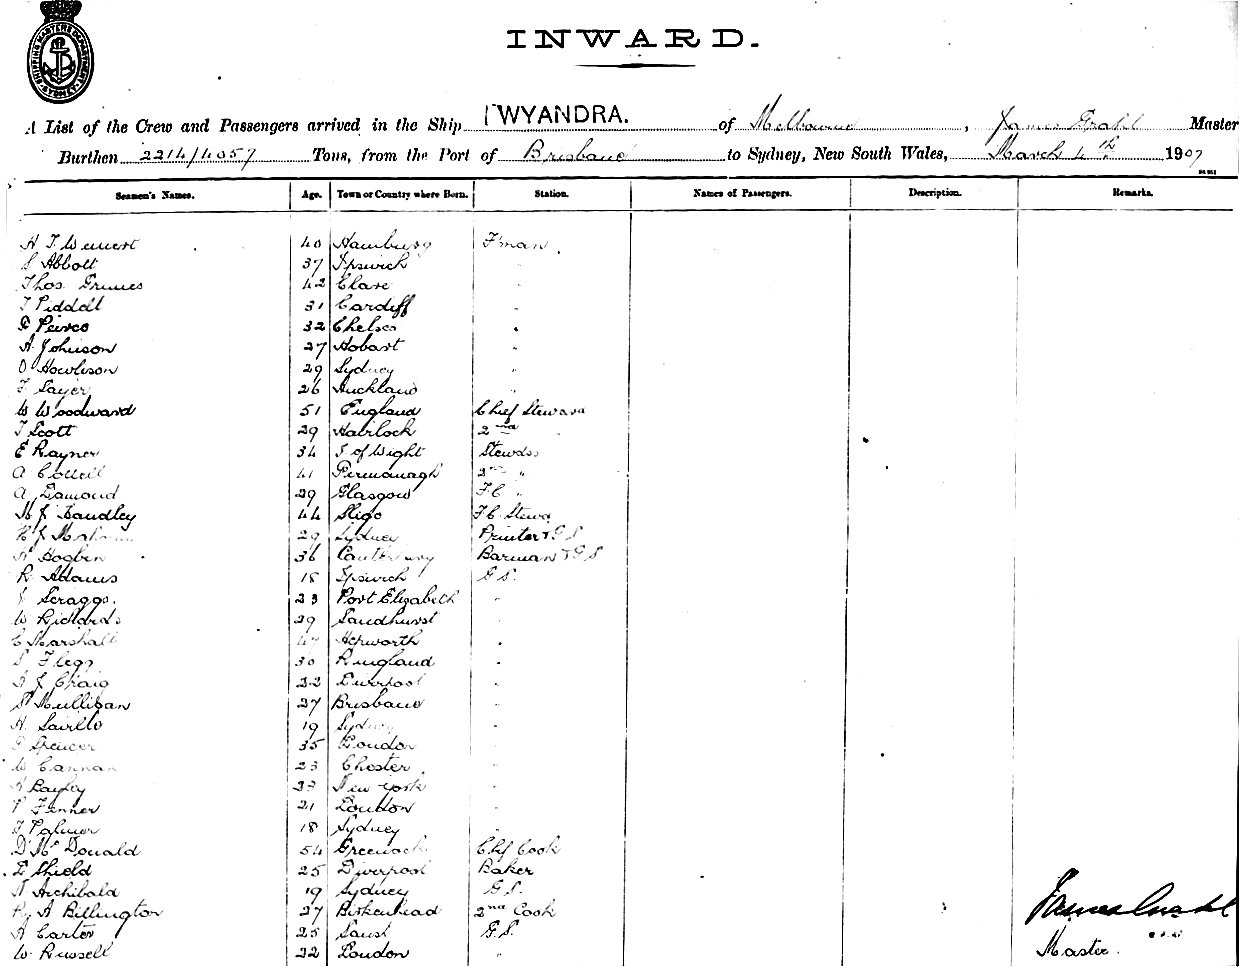 SHIPPING MASTERS DEPARTMENT SYDNEY
INWARD.
A List of the Crew and Passengers arrived in the Ship WYANDRA. of Melbourne, James Grahl Master
Burthen 2214/4057 Tons, from the Port of Brisbane to Sydney, New South Wales, March 4th 1907
Seamen's Names. Age. Town or Country where Born. Station. Names of Passengers. Description. Remarks.
40 Hamburg F'man
S Abbott 37 Ipswich "
Thos Grimes 42 Clare "
31 Cardiff "
32 Chelsea "
A Johnson 27 Hobart "
O Howlison 29 Sydney "
F Sayer 26 Auckland "
W Woodward 51 England Chief Steward
T Scott 29 Havilock 2nd "
E Rayner 34 I of Wight Stewdss
A Cottell 41 2nd "
29 Glasgow F.C. "
44 Sligo F.C. Stewd
29 Sydney Printer & G S
Hogben 36 Canterbury Barman & G S
R Adams 18 Ipswich G S.
J Scraggs. 23 Port Elizabeth "
W Richards 29 Sandhurst "
C Marshall 47 Hepworth "
Flegg 30 Ringland "
J Craig 22 Liverpool "
Mulligan 27 Brisbane "
H. Saville 19 Sydney "
Spencer 35 London "
W Cannan 23 Chester "
Bayley New York "
Fenner 21 London "
Palmer 18 Sydney "
D McDonald 54 Greenock Chf Cook
Shield 25 Liverpool Baker
Archibald 19 Sydney G.S.
A Billington 27 Birkenhead 2nd Cook
A Carter 25 G.S.
W. Russell 22 London "
James Grahl
Master.